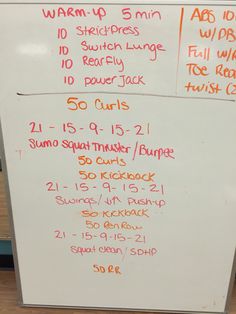 WARM-UP 5 min
10 Strict Press
10 Switch Lunge
10 Rear fly
10 power Jack
ABS 10
w/DB
Full w/
Toe Rea
twist (2
50 Curls
21-15-9-15-21
Sumo Squat Thruster/Burpee
50 Curls
50 Kickback
21-15-9-15-21
Swings/ Push-up
50 Kickback
50 Ren Row
21-15-9-15-21
Squat clean/SDHP
50 RR